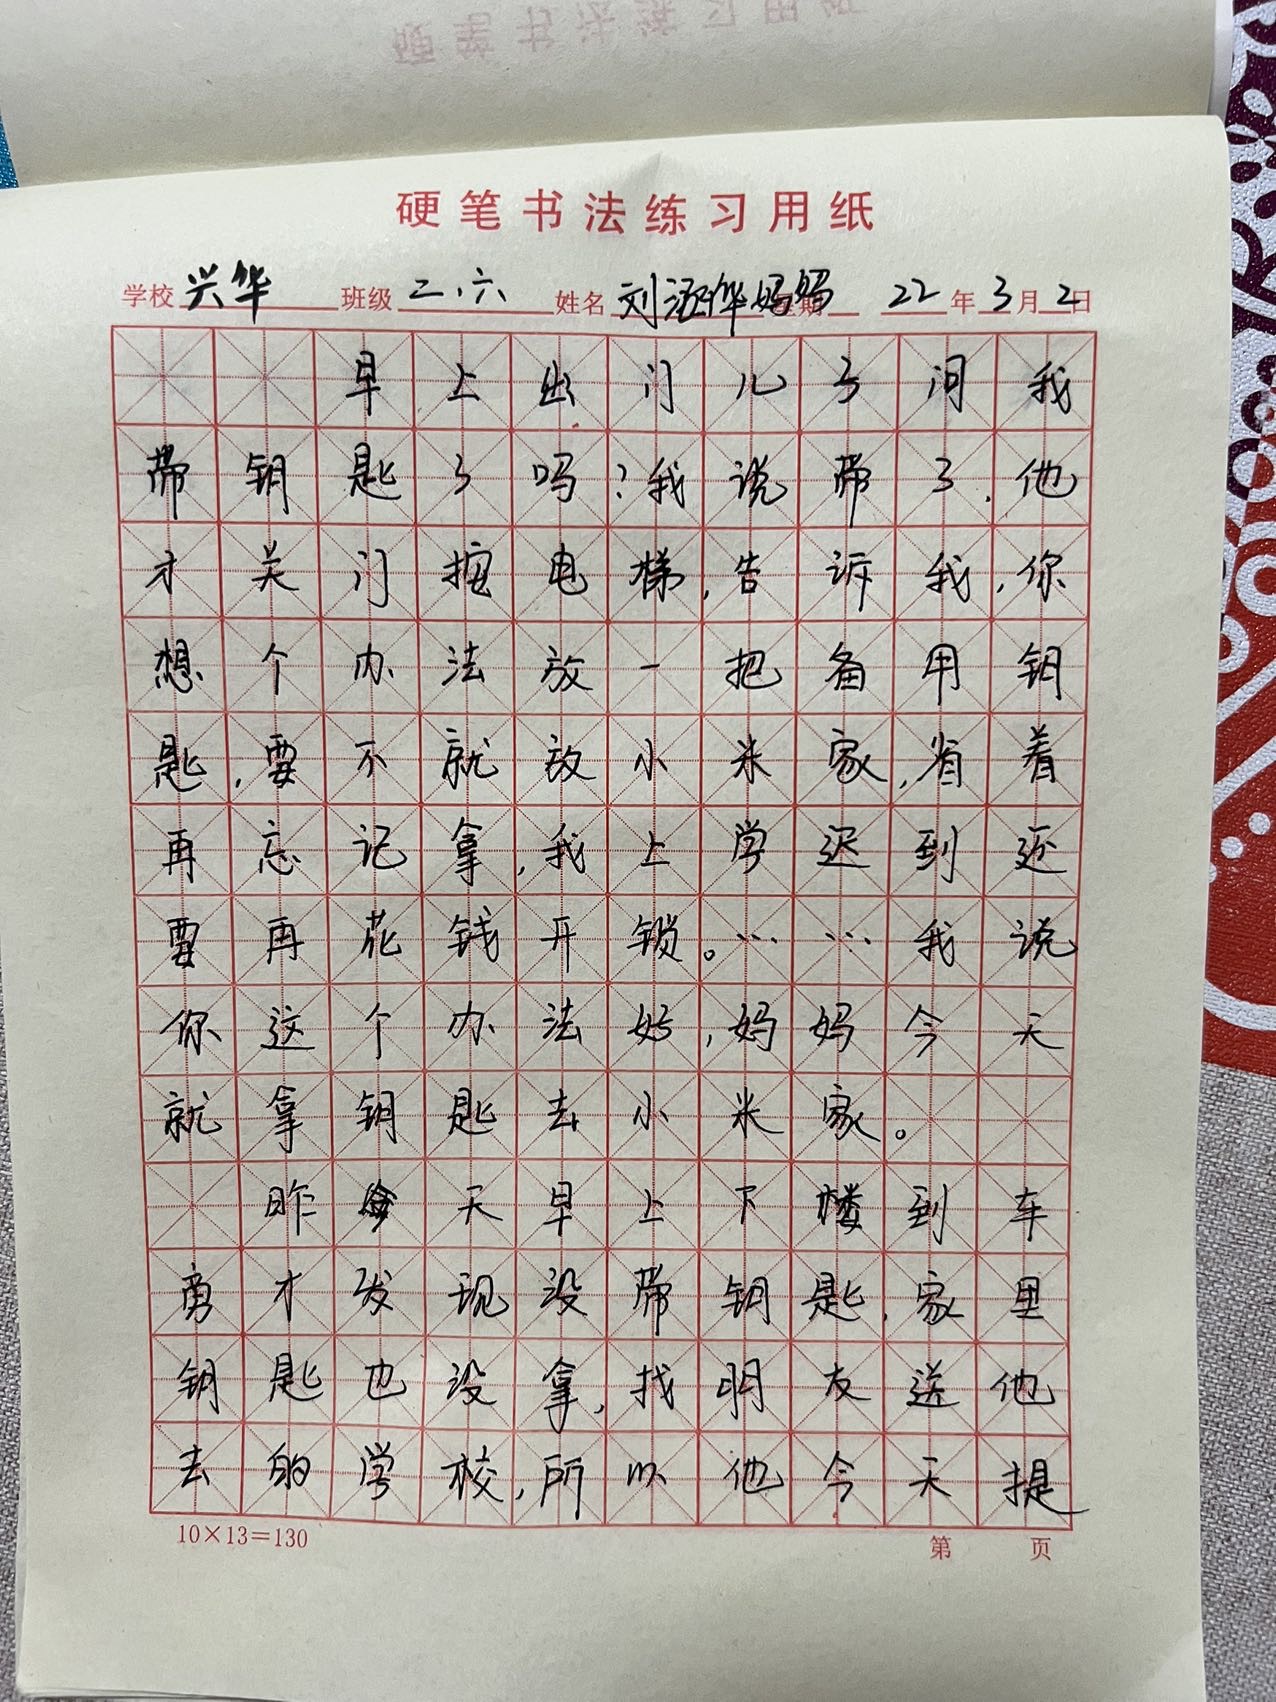 硬笔书法练习用纸
学校 兴华 班级 二.六 姓名 刘涵铧妈妈 星期 22年3月2日
早上出门儿子问我
带钥匙了吗?我说带了,他
才关门按电梯,告诉我,你
想个办法放一把备用钥
匙,要不就放小米家,省着
再忘记拿,我上学迟到还
要再花钱开锁。……我说
你这个办法好,妈妈今天
就拿钥匙去小米家。
昨天早上下楼到车
旁才发现没带钥匙,家里
钥匙也没拿,找朋友送他
去的学校,所以他今天提
10×13=130
第 页